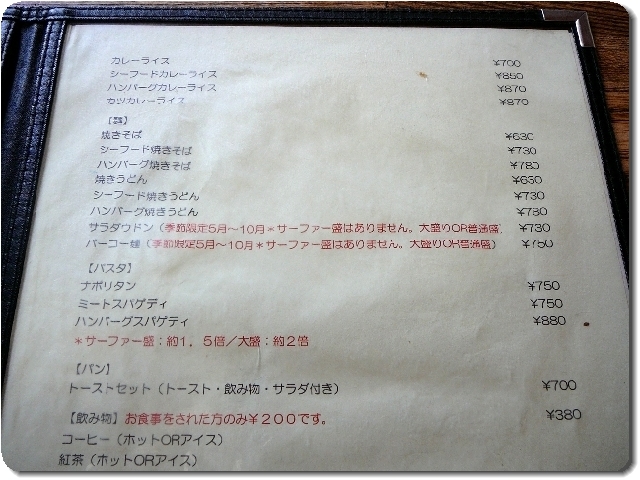 カレーライス ¥700
シーフードカレーライス ¥850
ハンバーグカレーライス ¥870
カツカレーライス ¥870
【麺】
焼きそば ¥630
シーフード焼きそば ¥730
ハンバーグ焼きそば ¥780
焼きうどん ¥650
シーフード焼きうどん ¥730
ハンバーグ焼きうどん ¥780
サラダウドン(季節限定5月~10月*サーファー盛はありません。大盛りOR普通盛) ¥730
パーコー麺(季節限定5月~10月*サーファー盛はありません。大盛りOR普通盛) ¥750
【パスタ】
ナポリタン ¥750
ミートスパゲティ ¥750
ハンバーグスパゲティ ¥880
*サーファー盛:約1.5倍/大盛:約2倍
【パン】
トーストセット(トースト・飲み物・サラダ付き) ¥700
【飲み物】お食事をされた方のみ¥200です。 ¥380
コーヒー(ホットORアイス)
紅茶(ホットORアイス)